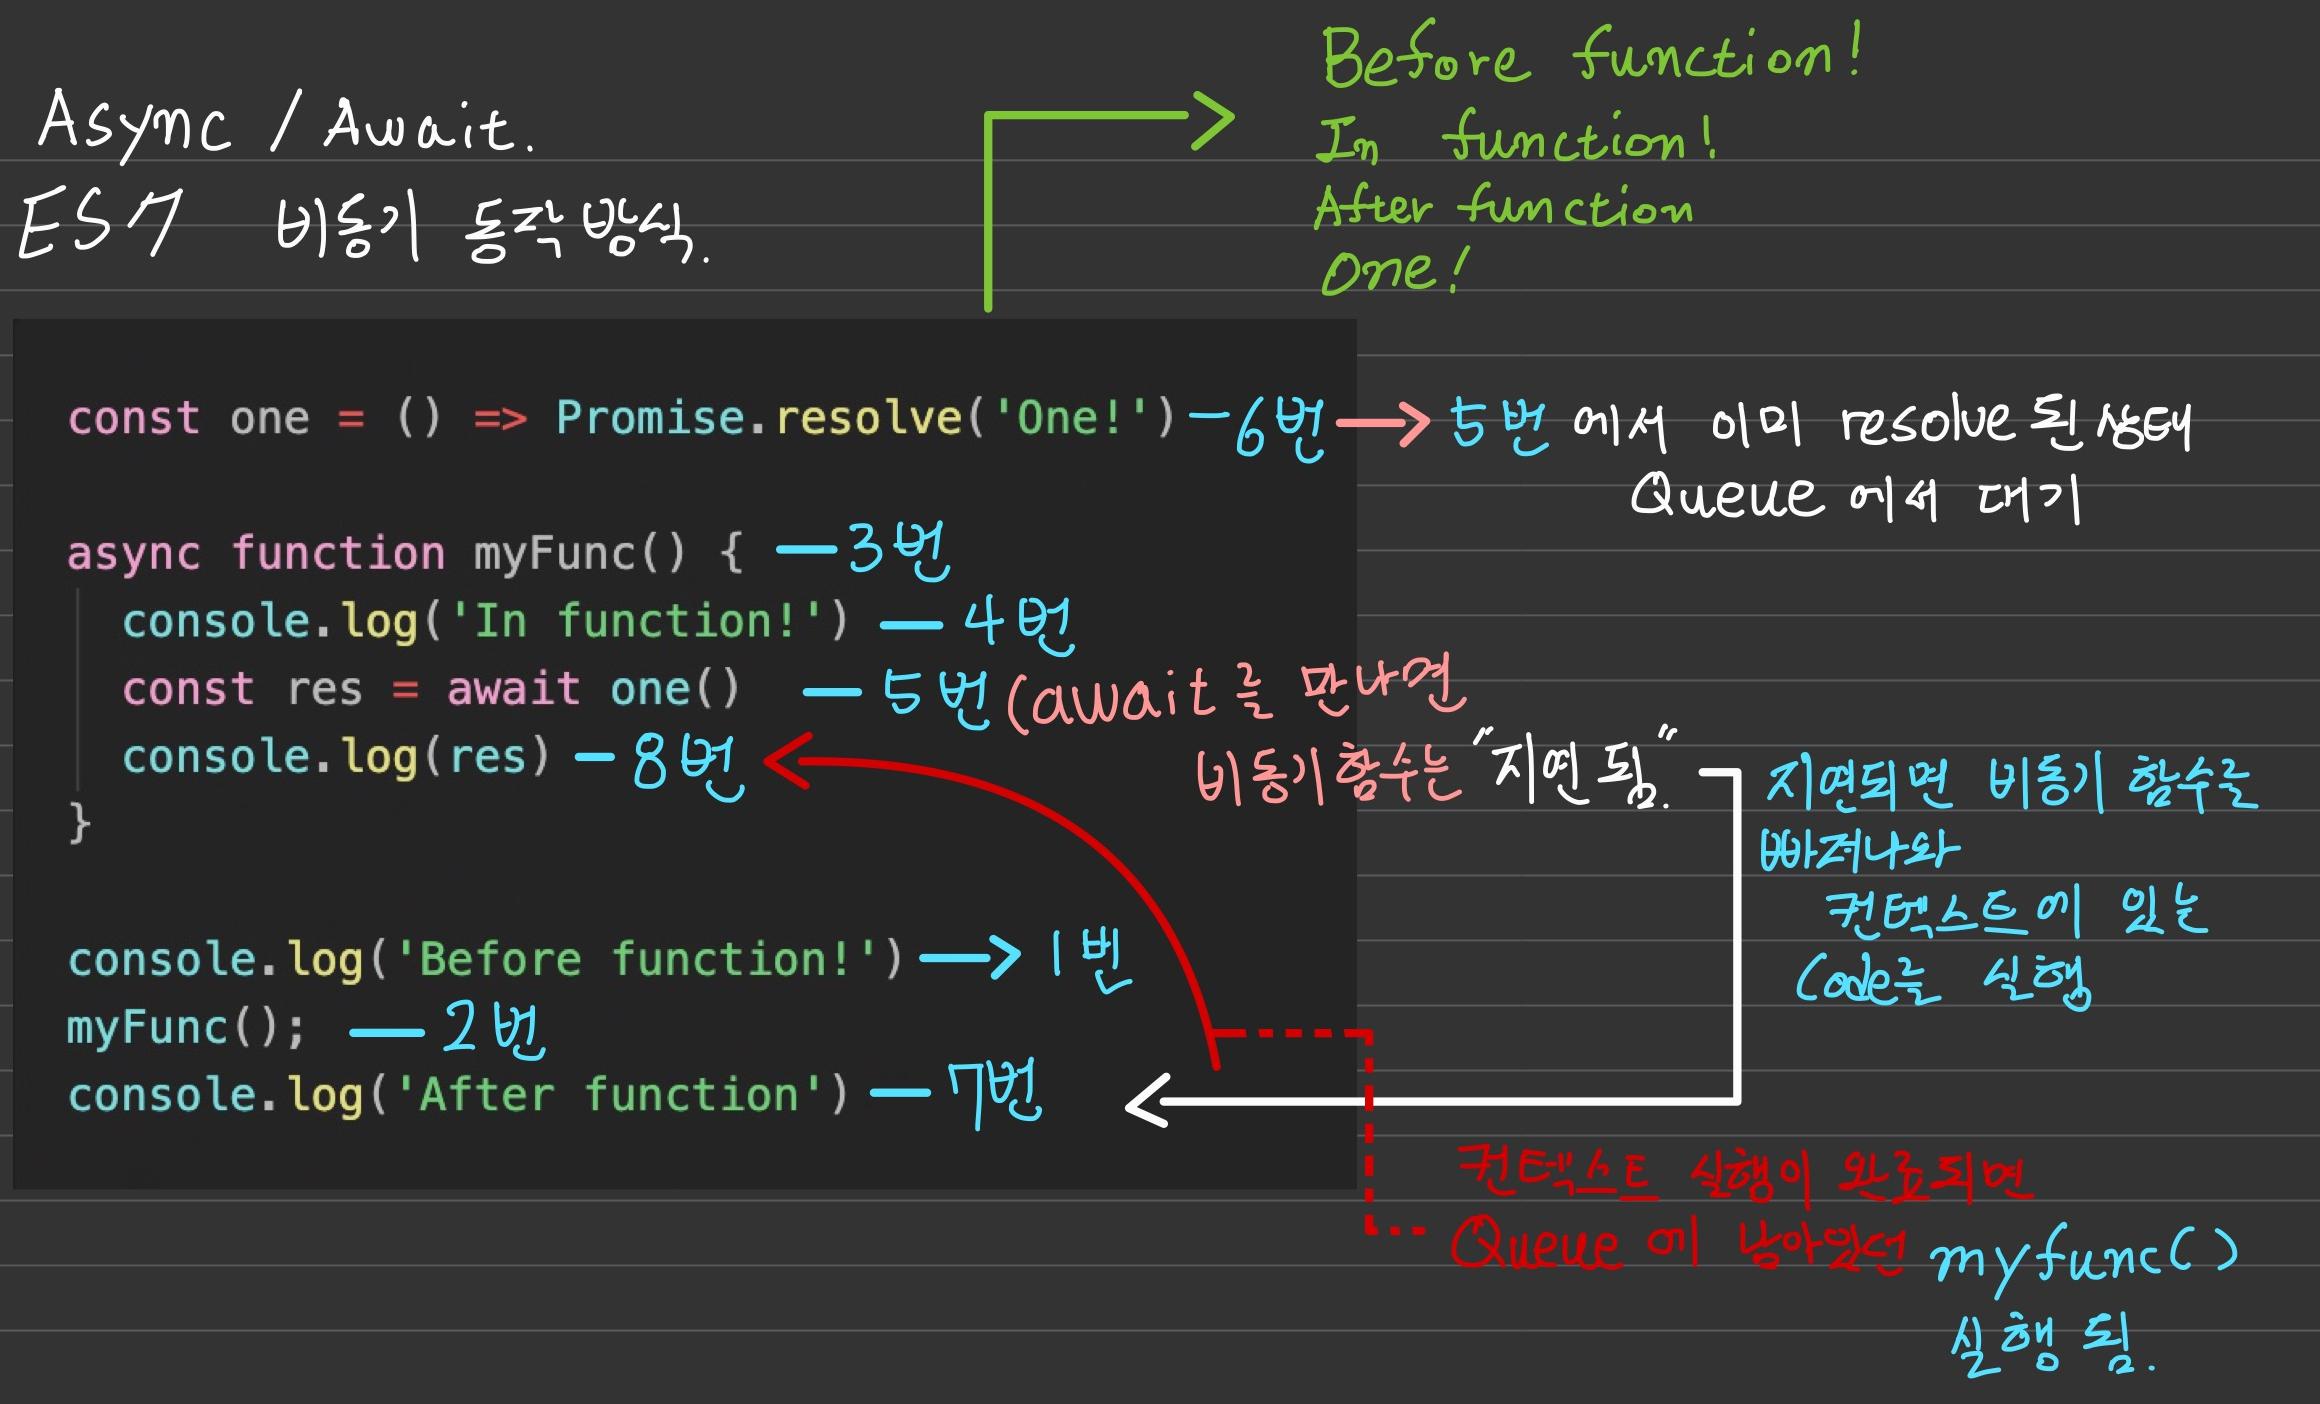 Async / Await.
ES7 비동기 동작방식.
Before function!
In function!
After function
One!
const one = () => Promise.resolve('One!') 6번 → 5번 에서 이미 resolve 된 상태
Queue 에서 대기
async function myFunc() { 3번
console.log('In function!') 4번
const res = await one() 5번 (await를 만나면
비동기함수는 "지연됨."
console.log(res) 8번
}
지연되면 비동기 함수를
빠져나와
컨텍스트에 있는
Code를 실행
console.log('Before function!') → 1번
myFunc(); 2번
console.log('After function') 7번
컨텍스트 실행이 완료되면
Queue에 남아있던 myfunc()
실행 됨.